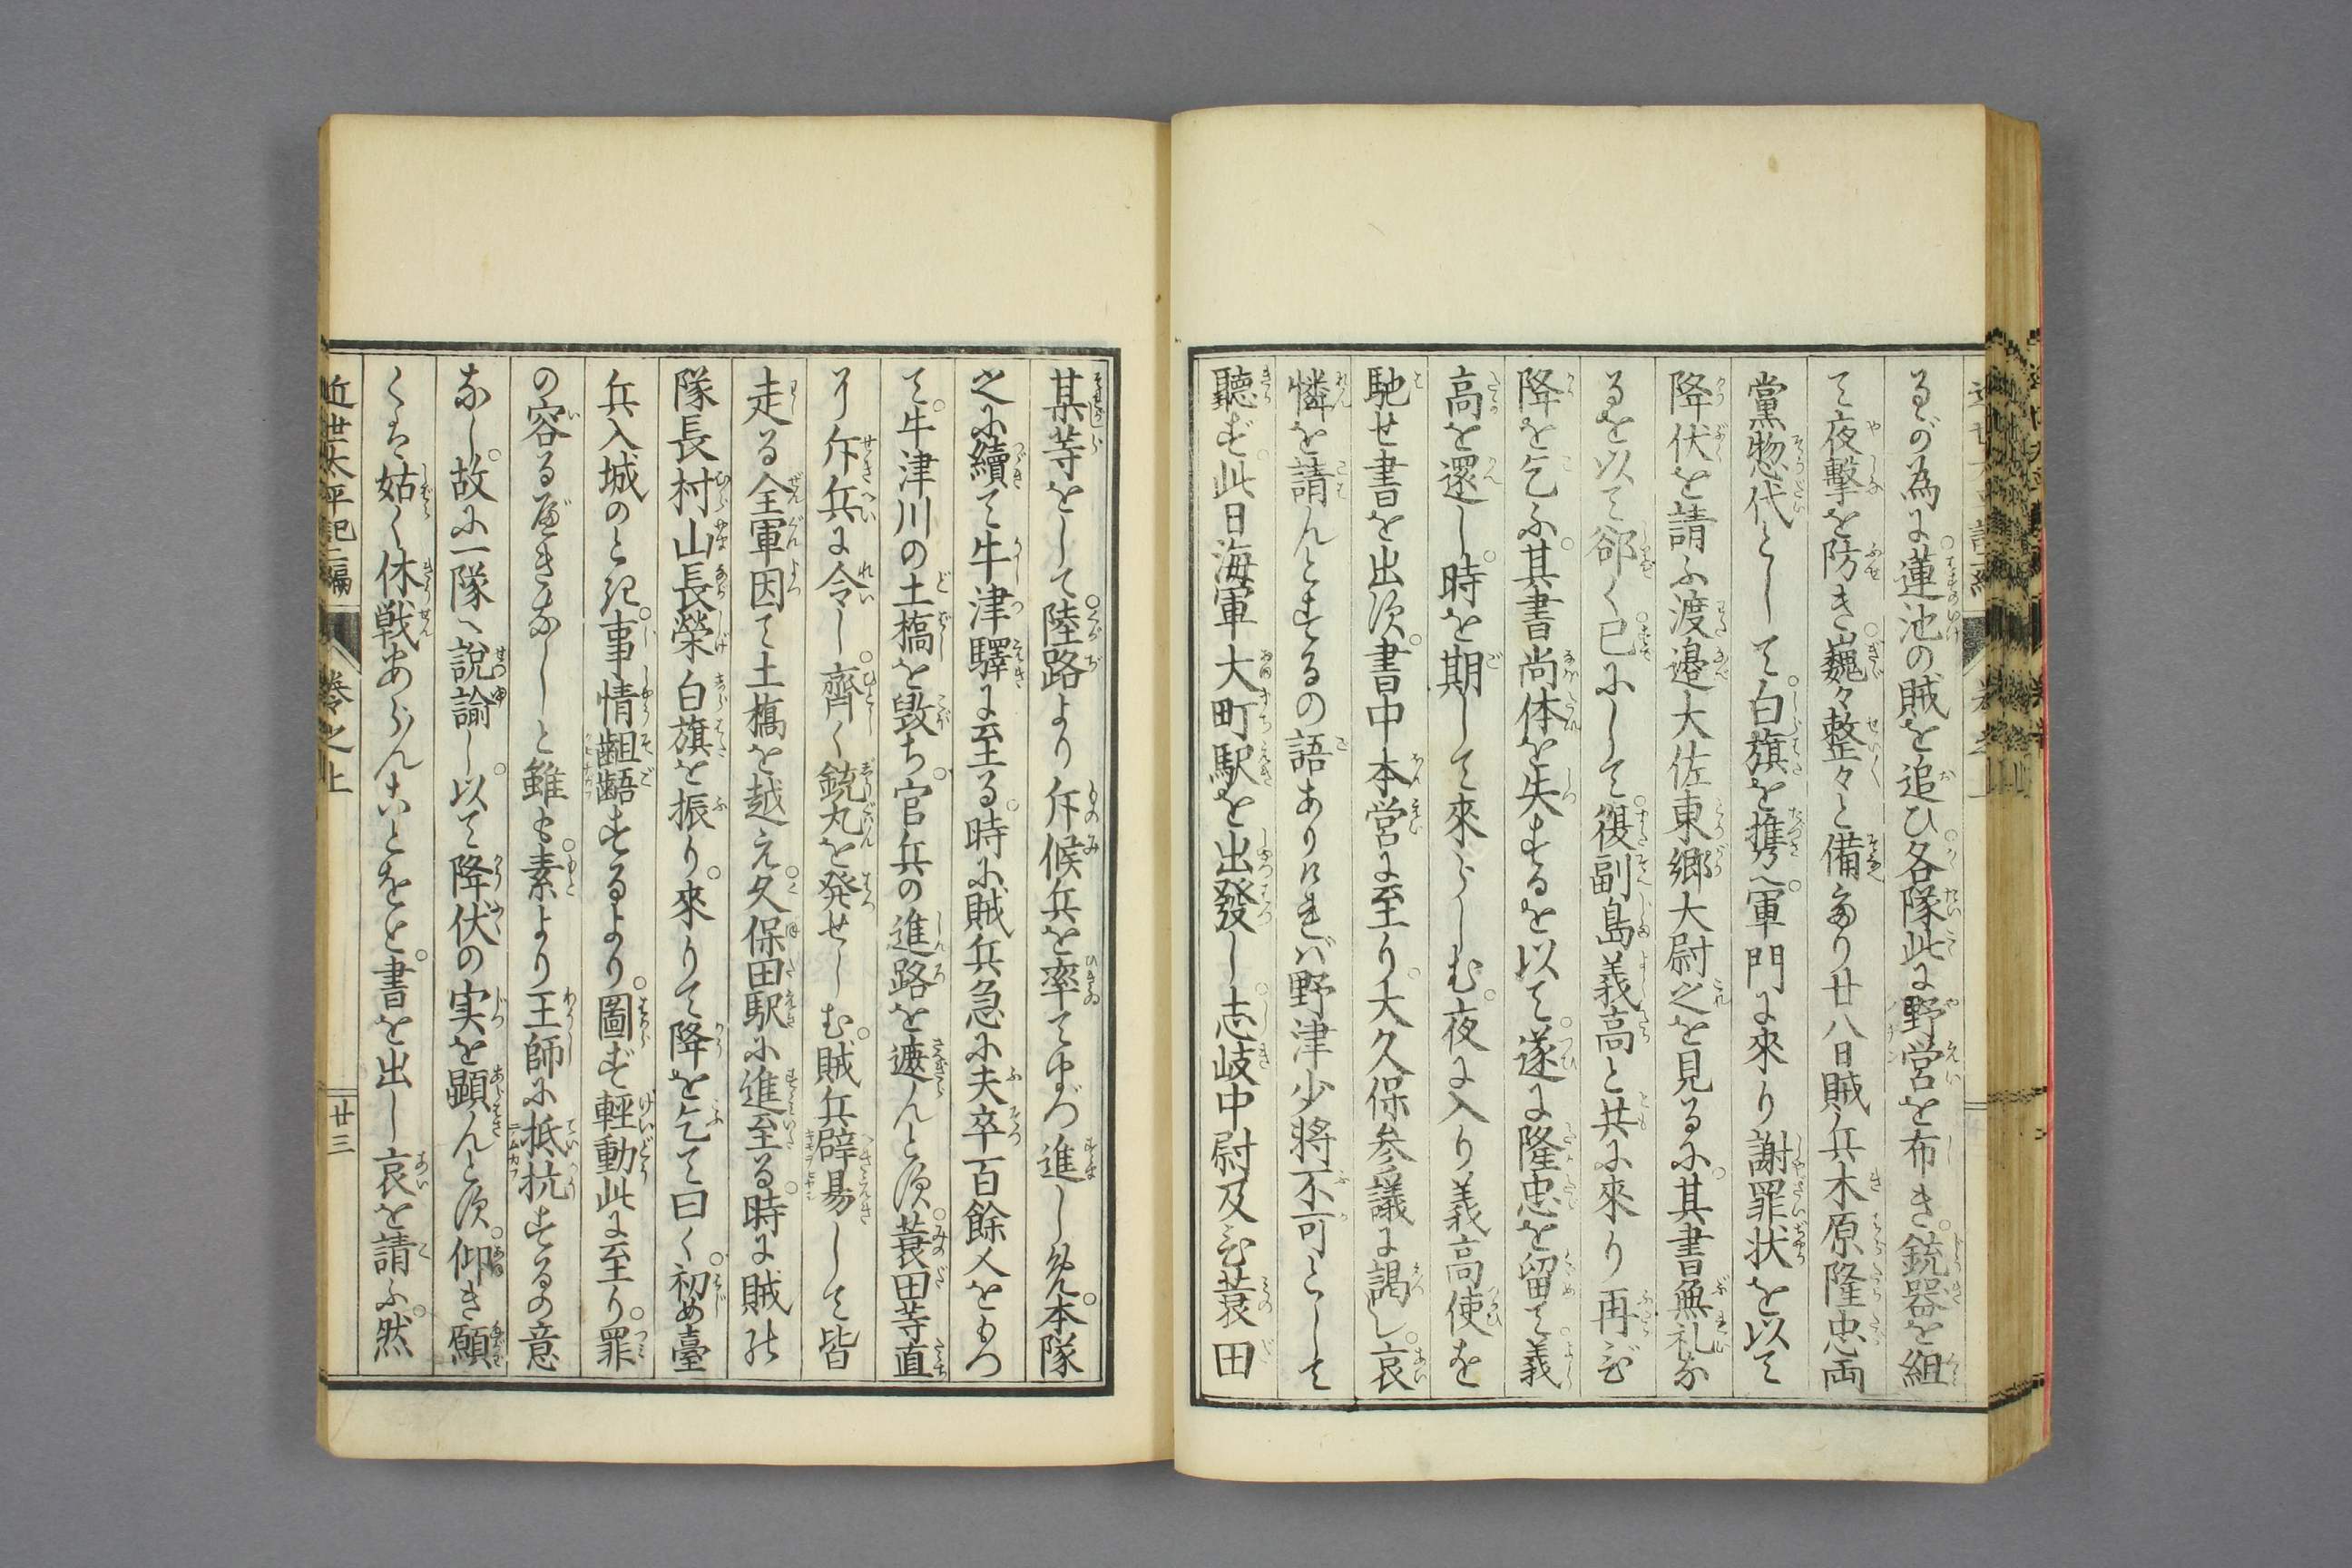 るが為に蓮池の賊を追ひ各隊此に野営を布き銃器を組
て夜撃を防き巍々整々と備たり廿八日賊兵木原隆忠両
黨惣代として白旗を携へ軍門に來り謝罪状を以て
降伏を請ふ渡邉大佐東郷大尉之を見るに其書無礼な
るを以て郤く已にして復副島義高と共に來り再び
降を乞ふ其書尚体を失するを以て遂に隆忠を留て義
高を還し時を期して來らしむ夜に入り義高使を
馳せ書を出す書中本営に至り大久保参議に謁し哀
憐を請んとするの語ありけれバ野津少将不可として
聴ず此日海軍大町駅を出發し志岐中尉及び蓑田
某等をして陸路より斥候兵を率てまづ進しめ本隊
之に續て牛津驛に至る時に賊兵急に夫卒百餘人をもつ
て牛津川の土橋を毀ち官兵の進路を遮んとす蓑田等直
に斥兵に令し齊く銃丸を発せしむ賊兵辟易して皆
走る全軍因て土橋を越え久保田駅に進至る時に賊の
隊長村山長榮白旗を振り來りて降を乞て曰く初め臺
兵入城のとき事情齟齬するより圖ず輕動此に至り罪
の容るべきなしと雖も素より王師に抵抗するの意
なし故に一隊へ説諭し以て降伏の実を顕んとす仰き願
くは姑く休戦あらんことをと書を出し哀を請ふ然
近世太平記二編 巻之上 廿三